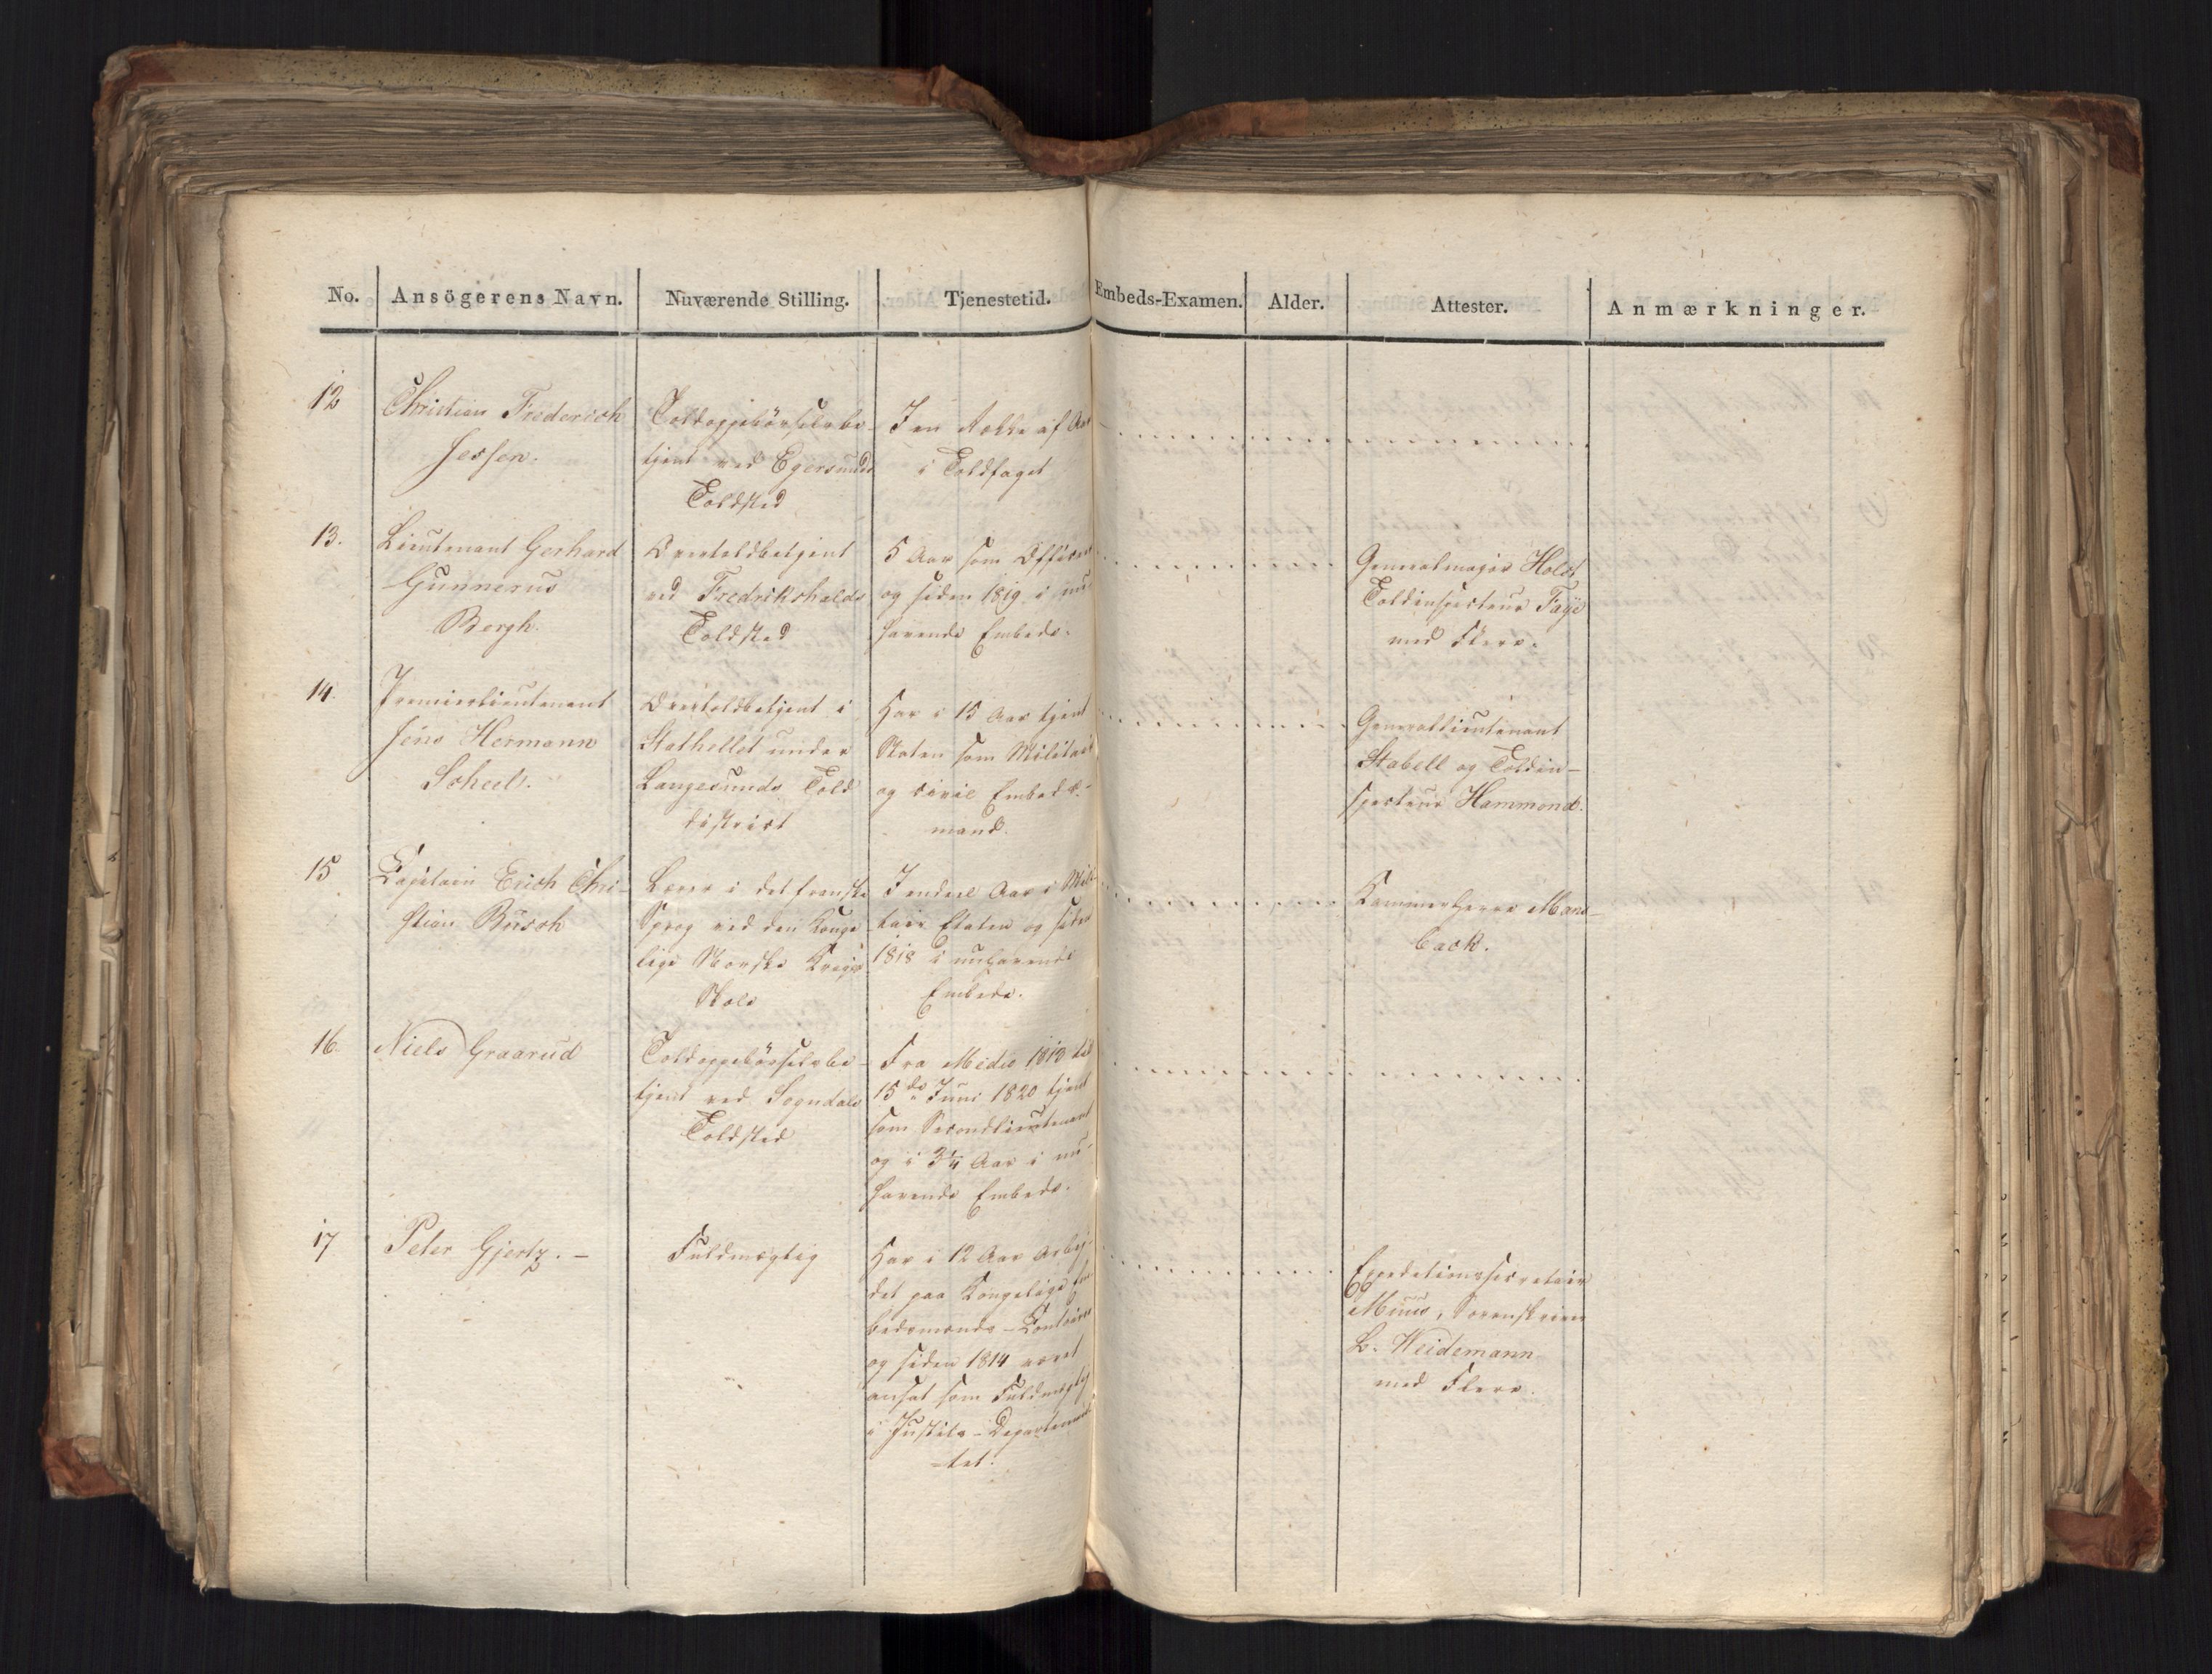 No. Ansögerens Navn. Nuværende Stilling. Tjenestetid. Embeds-Examen. Alder. Attester. Anmærkninger.
12 Christian Frederich
Jessen.
Toldoppebörselsbe-
tjent ved Egersunds
Toldsted
I en Række af Aar
i Toldfaget
13. Lieutenant Gerhard
Gunnerus
Bergh.
Overtoldbetjent
ved Fredrikshalds
Toldsted
5 Aar som Officer
og siden 1819 i nu
havende Embede.
Generalmajor Holst
Toldinspecteur Faye
med Flere.
14. Premierlieutenant
Jens Hermann
Scheel.
Overtoldbetjent i
Stathellet under
Langesunds Told
district
Har i 15 Aar tjent
Staten som Militair
og civil Embeds-
mand.
Generallieutenant
Stabell og Toldin-
specteur Hammond.
15 Capitain Erich Chri-
stian Busch
Lærer i det franske
Sprog ved den Konge
lige Norske Krigs-
Skole
I endeel Aar i Mili-
tair Etaten og siden
1818 i nuhavende
Embede.
Kammerherre Mans-
back.
16. Niels Graarud
Toldoppebörselsbe-
tjent ved Sogndals
Toldsted
Fra Medio 1810 til
15de Juni 1820 tjent
som Secondlieutenant
og i 3/4 Aar i nu-
havende Embede.
17 Peter Gjertz. -
Fuldmægtig
Har i 12 Aar Arbej-
det paa Kongelige Em-
bedsmænds-Contoirer
og siden 1814 været
ansat som Fuldmægtig
i Justits-Departemen-
=tet.
Expeditionssecretair
Muus, Sorenskriver
L. Weidemann
med Flere.